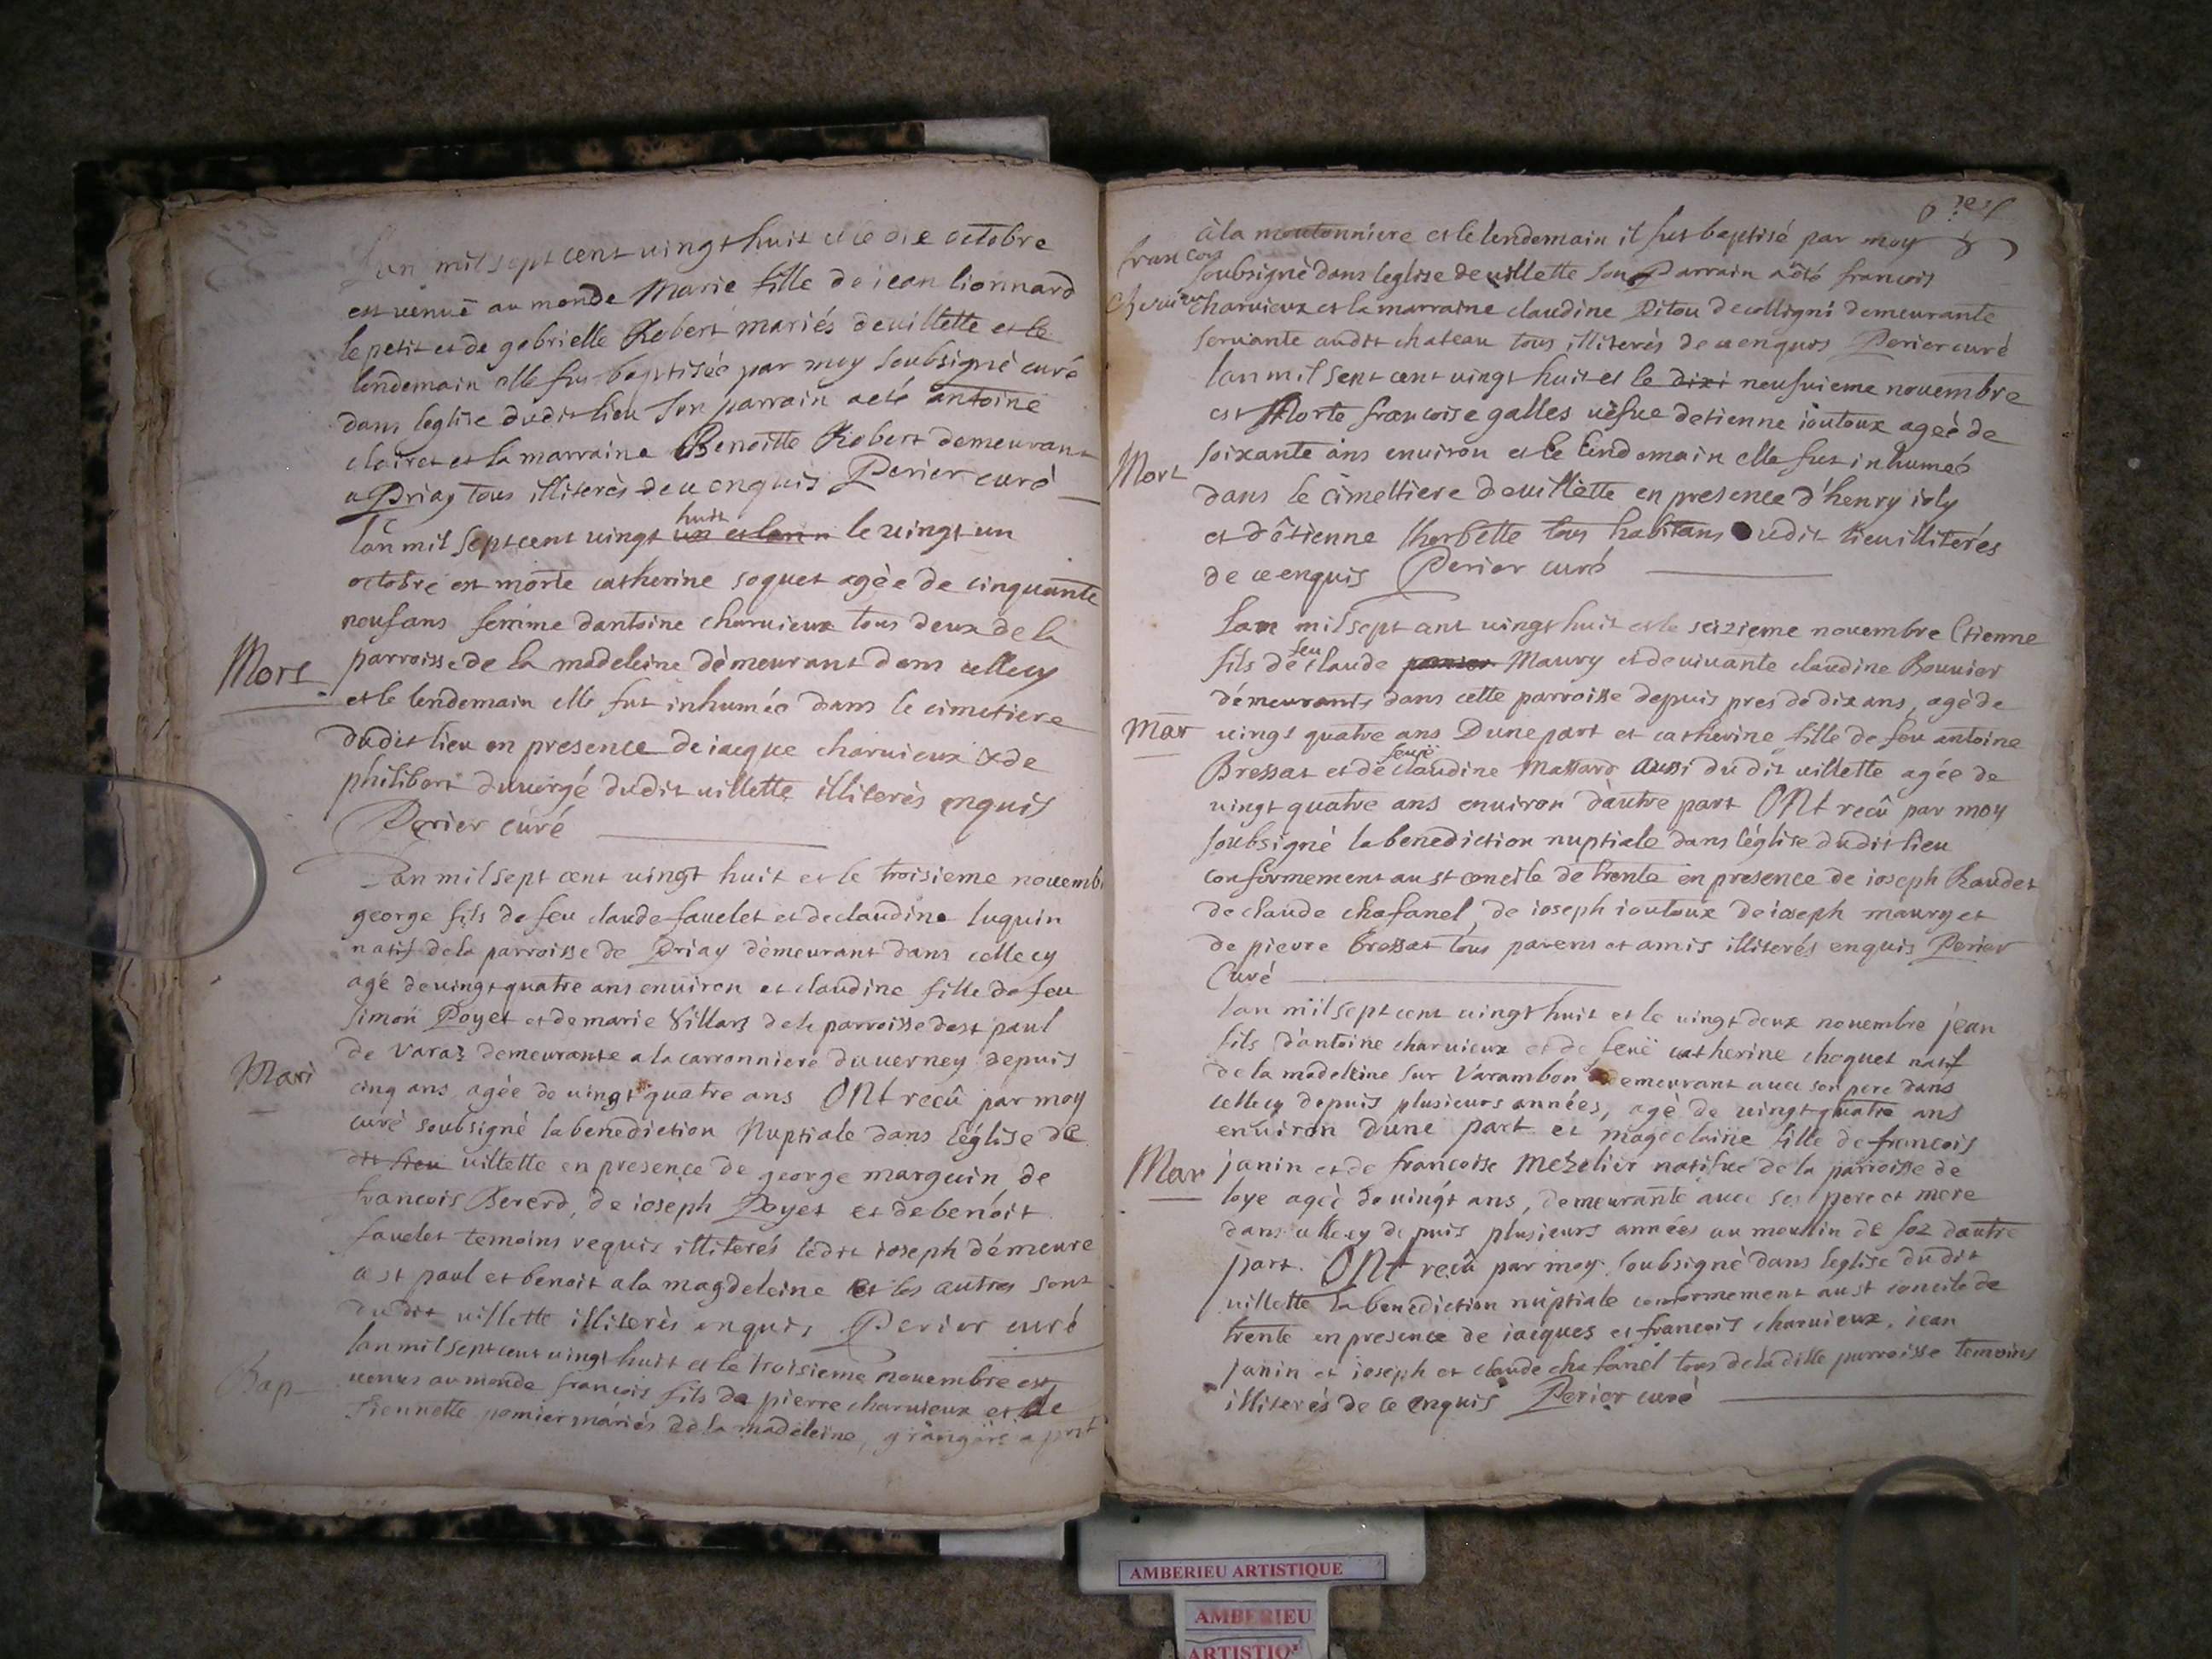 Lan mil sept cent vingt huit et le dix octobre
est venuë au monde Marie fille de jean lionnard
le petit et de gabrielle Robert mariés de villette et le
lendemain elle fut baptisée par moy soubsigné curé
dans leglise dudit lieu son parrain a eté antoine
clairet et la marraine Benoitte Robert demeurant
a Priay tous illiterés de ce enquis Perier curé
lan mil sept cent vingt huit le vingt un
octobre est morte catherine soquet agèe de cinquante
neuf ans femme dantoine charvieux tous deux de la
Mort
parroisse de la madeleine démeurant dans celle cy
et le lendemain elle fut inhumée dans le cimetiere
dudit lieu en presence de iacque charvieux & de
philibert duvergé dudit villette illiterés enquis
Perier curé
Lan mil sept cent vingt huit et le troisieme novemb
george fils de feu claude favelet et de claudine luquin
natif de la parroisse de Priay démeurant dans celle cy
agé de vingt quatre ans environ et claudine fille de feu
simon Poyet et de marie Villars de la parroisse de st paul
de Varax demeurante a la carronniere du verney depuis
Mari
cinq ans agée de vingt quatre ans ONt recû par moy
curé soubsigné la benediction Nuptiale dans léglise de
dit lieu villette en presence de george marguin de
francois Bererd, de ioseph Poyet et de benoit
favelet temoins requis illiterés ledit ioseph démeure
a st paul et benoit a la magdeleine et les autres sont
dudit villette illiterés enquis Perier curé
lan mil sept cent vingt huit et le troisieme novembre est
Bap
venus au monde francois fils de pierre charvieux et de
pomier mariés de la madeleine,
à la moutonniere et le lendemain il fut baptisé par moy
francois
soubsigné dans leglise de villette son Parrain a été francois
charvieux et la marraine claudine Pitou de colligni demeurante
servante audit chateau tous illiterés de ce enquis Perier curé
lan mil sept cent vingt huit et le dixi neufvieme novembre
est Morte francoise galles vefve detienne ioutoux ageé de
Mort
soixante ans environ et le lendemain elle fut inhumeé
dans le cimettiere de villette en presence d'henry ioly
et d'étienne therbette tous habitans dudit lieu illiterés
de ce enquis Perier curé
Lan mil sept cent vingt huit et le seizieme novembre Etienne
fils de feu claude Maury et de vivante claudine Bouvier
démeurants dans cette parroisse depuis pres de dix ans, agé de
Mar
vingt quatre ans Dune part et catherine fille de feu antoine
Bressat et de feuë claudine Massard aussi du dit villette agée de
vingt quatre ans environ dàutre part ONt recû par moy
soubsigné la benediction nuptiale dans léglise dudit lieu
conformement au st concile de trente en presence de ioseph Raudet
de claude chafanel, de ioseph ioutoux de ioseph maury et
de pierre bressat tous parens et amis illiterés enquis Perier
Curé
lan mil sept cent vingt huit et le vingt deux novembre jean
fils dantoine charvieux et de feuë catherine choquet natif
de la madeleine sur Varambon demeurant avec son pere dans
celle cy depuis plusieurs années, agé de vingt quatre ans
environ dune part et magdelaine fille de francois
Mar
janin et de francoise Mezelier natifve de la parroisse de
loye agèe de vingt ans, demeurante avec ses pere et mere
dans celle cy depuis plusieurs années au moulin de foz dautre
part. ONt recû par moy soubsigné dans leglise dudit
villette la benediction nuptiale conformement au st concile de
trente en presence de iacques et francois charvieux, jean
janin et ioseph et claude chafanel tous de la ditte parroisse temoins
illiterés de ce enquis Perier curé
AMBERIEU ARTISTIQUE
AMBERIEU